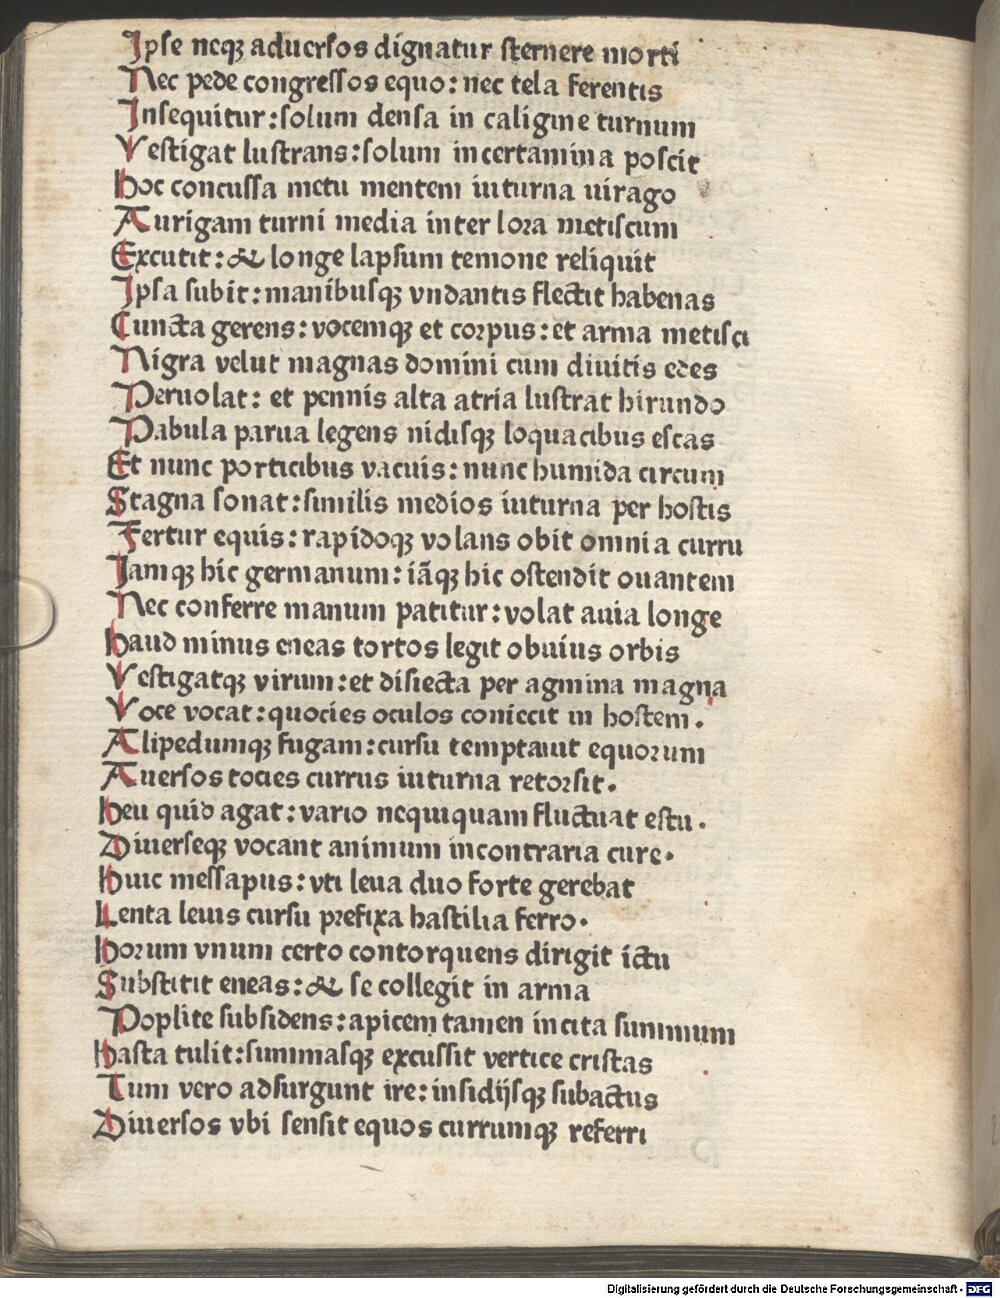 Ipse neqꝫ aduersos dignatur sternere morti
Nec pede congressos equo: nec tela ferentis
Insequitur: solum densa in caligine turnum
Vestigat lustrans: solum incertamina poscit
Hoc concussa metu mentem iuturna uirago
Aurigam turni media inter lora metiscum
Excutit: & longe lapsum temone reliquit
Ipsa subit: manibusqꝫ vndantis flectit habenas
Cuncta gerens: vocemqꝫ et corpus: et arma metisci
Nigra velut magnas domini cum diuitis edes
Peruolat: et pennis alta atria lustrat hirundo
Pabula parua legens nidisqꝫ loquacibus escas
Et nunc porticibus vacuis: nunc humida circum
Stagna sonat: similis medios iuturna per hostis
Fertur equis: rapidoqꝫ volans obit omnia curru
Iamqꝫ hic germanum: iāqꝫ hic ostendit ouantem
Nec conferre manum patitur: volat auia longe
Haud minus eneas tortos legit obuius orbis
Vestigatqꝫ virum: et disiecta per agmina magna
Voce vocat: quocies oculos coniecit in hostem.
Alipedumqꝫ fugam: cursu temptauit equorum
Auersos tocies currus iuturna retorsit.
Heu quid agat: vario nequiquam fluctuat estu.
Diuerseqꝫ vocant animum incontraria cure.
Huic messapus: vti leua duo forte gerebat
Lenta leuis cursu prefixa hastilia ferro.
Horum vnum certo contorquens dirigit ictu
Substitit eneas: & se collegit in arma
Poplite subsidens: apicem tamen incita summum
Hasta tulit: summasqꝫ excussit vertice cristas
Tum vero adsurgunt ire: insidijsqꝫ subactus
Diuersos vbi sensit equos currumqꝫ referri
Digitalisierung gefördert durch die Deutsche Forschungsgemeinschaft - DFG